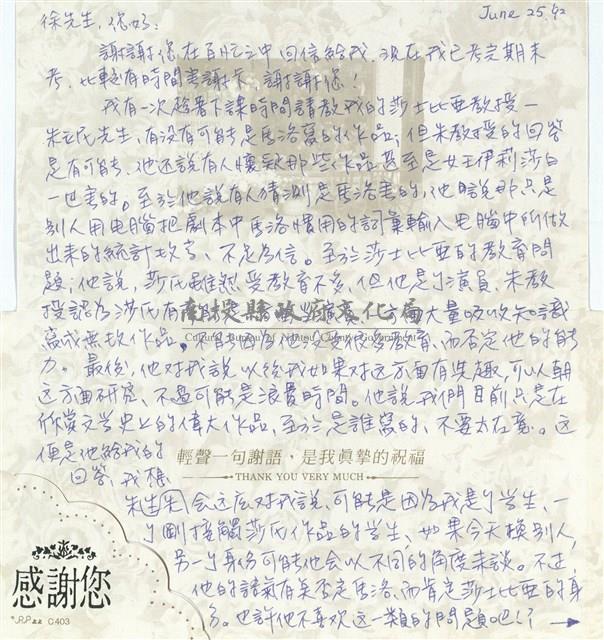 June 25,92
徐先生,您好:
謝謝您在百忙之中回信給我,現在我已考完期末
考,比較有時間寫謝卡,謝謝您!
我有一次趁着下課時間請教我的莎士比亞教授—
朱立民先生,有沒有可能是馬洛寫的作品;但朱教授的回答
是有可能,他还說有人懷疑那些作品甚至是女王伊莉莎白
一世書的。至於他說有人猜測是馬洛書的,他說那只是
別人用电腦把劇本中馬洛慣用的詞彙輸入电腦中所做
出來的統計攷去,不足為信。至於莎士比亞的教育問
題;他說,莎氏雖然受教育不多,但他是个演員,朱教
授認為莎氏有 大量吸收知識
寫成無數作品。 因為他沒受很多教育,而否定他的能
力。最後,他对我說以後我如果对这方面有興趣,可以朝
这方面研究,不盡可能是浪費時間。他說我們目前只是在
欣賞文學史上的偉大作品,至於是誰寫的,不要太在意。这
便是他給我的
回答,我想,
朱先生会这麼对我說,可能是因為我是个學生,一
个剛接觸莎氏作品的學生,如果今天換別人,
另一个身份可能他会以不同的角度來談。不过,
他的語氣有點否定馬洛,而肯定莎士比亞的身
分。也許他不喜欢这一類的問題吧!?→
南投縣政府文化局
Cultural Bureau of Nantou County Government
輕聲一句謝語,是我眞摯的祝福
THANK YOU VERY MUCH
感謝您
C403